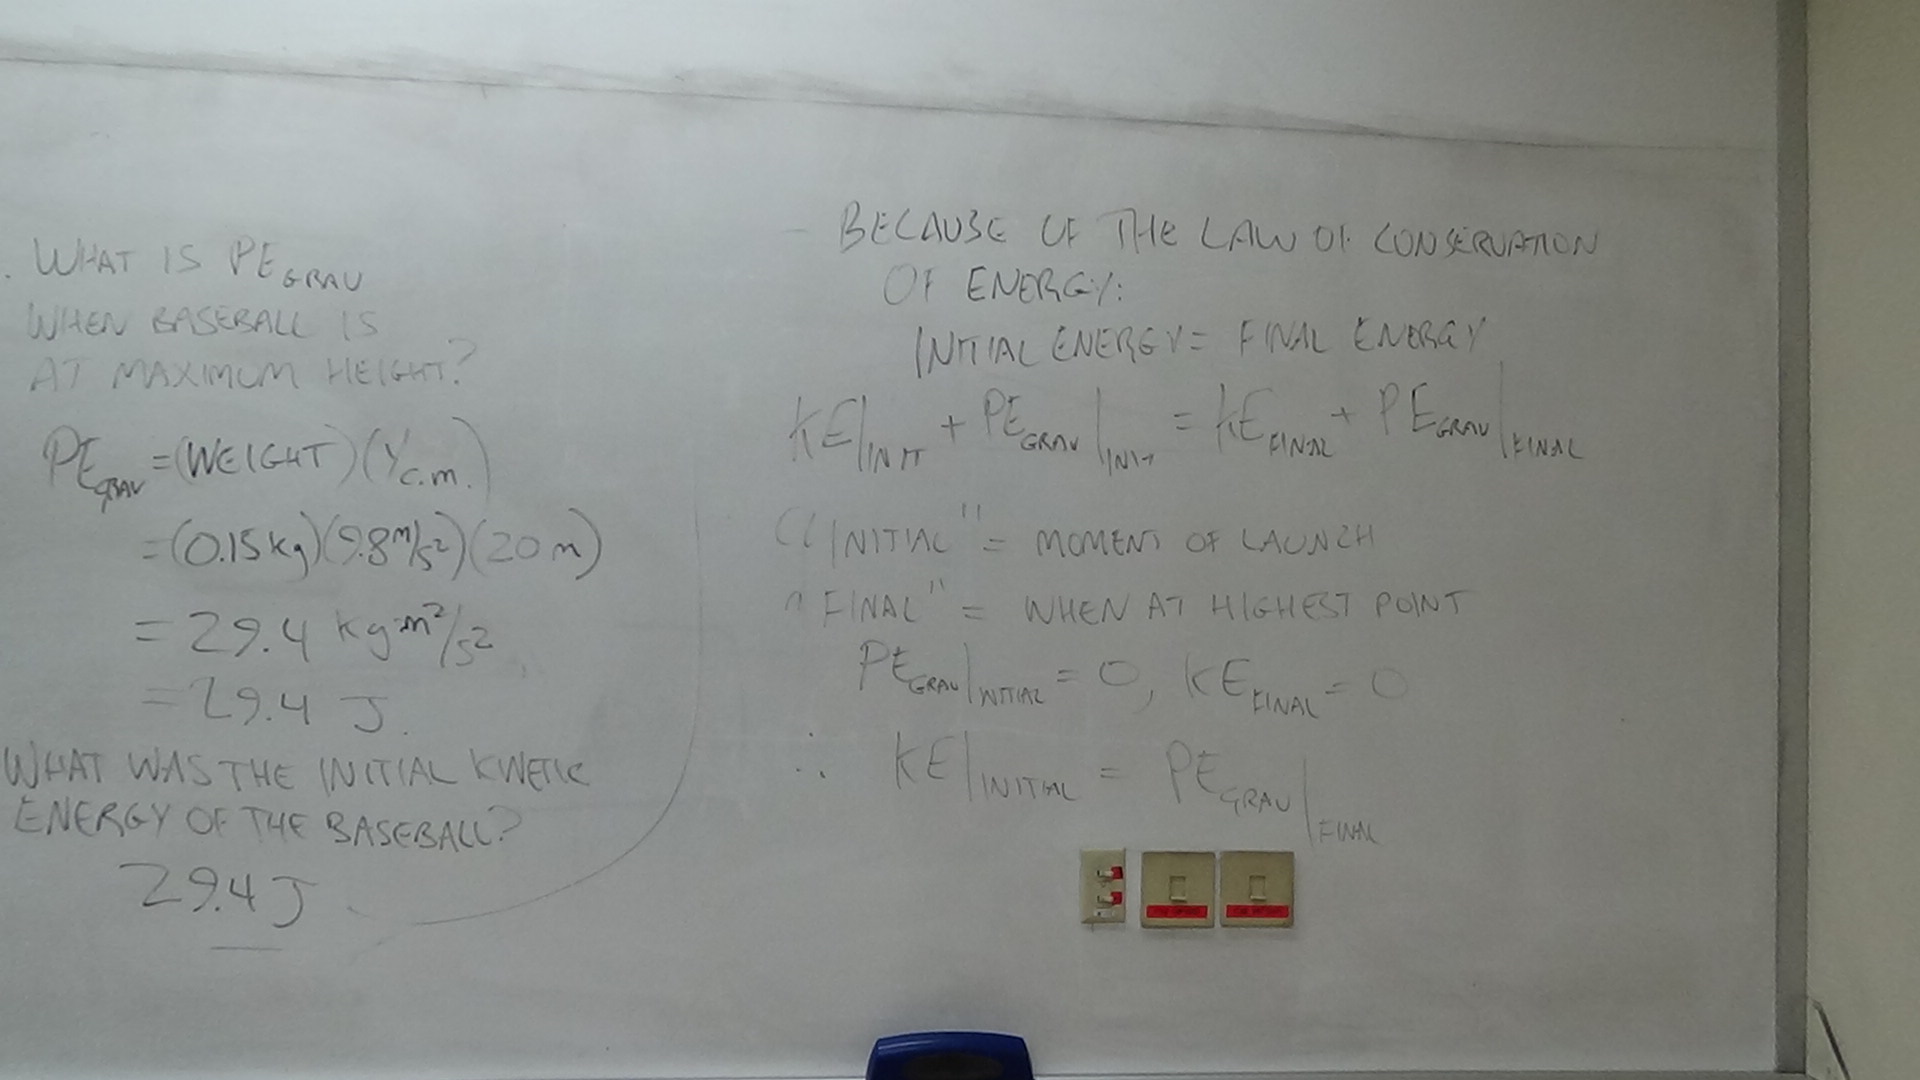 . WHAT IS PE GRAV
WHEN BASEBALL IS
AT MAXIMUM HEIGHT?
PE GRAV = (WEIGHT)(Y c.m.)
= (0.15 kg)(9.8 m/s²)(20 m)
= 29.4 kg·m²/s²
= 29.4 J.
WHAT WAS THE INITIAL KINETIC
ENERGY OF THE BASEBALL?
29.4 J
- BECAUSE OF THE LAW OF CONSERVATION
OF ENERGY:
INITIAL ENERGY = FINAL ENERGY
KE|INIT + PE GRAV|INIT = KE FINAL + PE GRAV|FINAL
"INITIAL" = MOMENT OF LAUNCH
"FINAL" = WHEN AT HIGHEST POINT
PE GRAV|INITIAL = 0, KE FINAL = 0
∴ KE|INITIAL = PE GRAV|FINAL